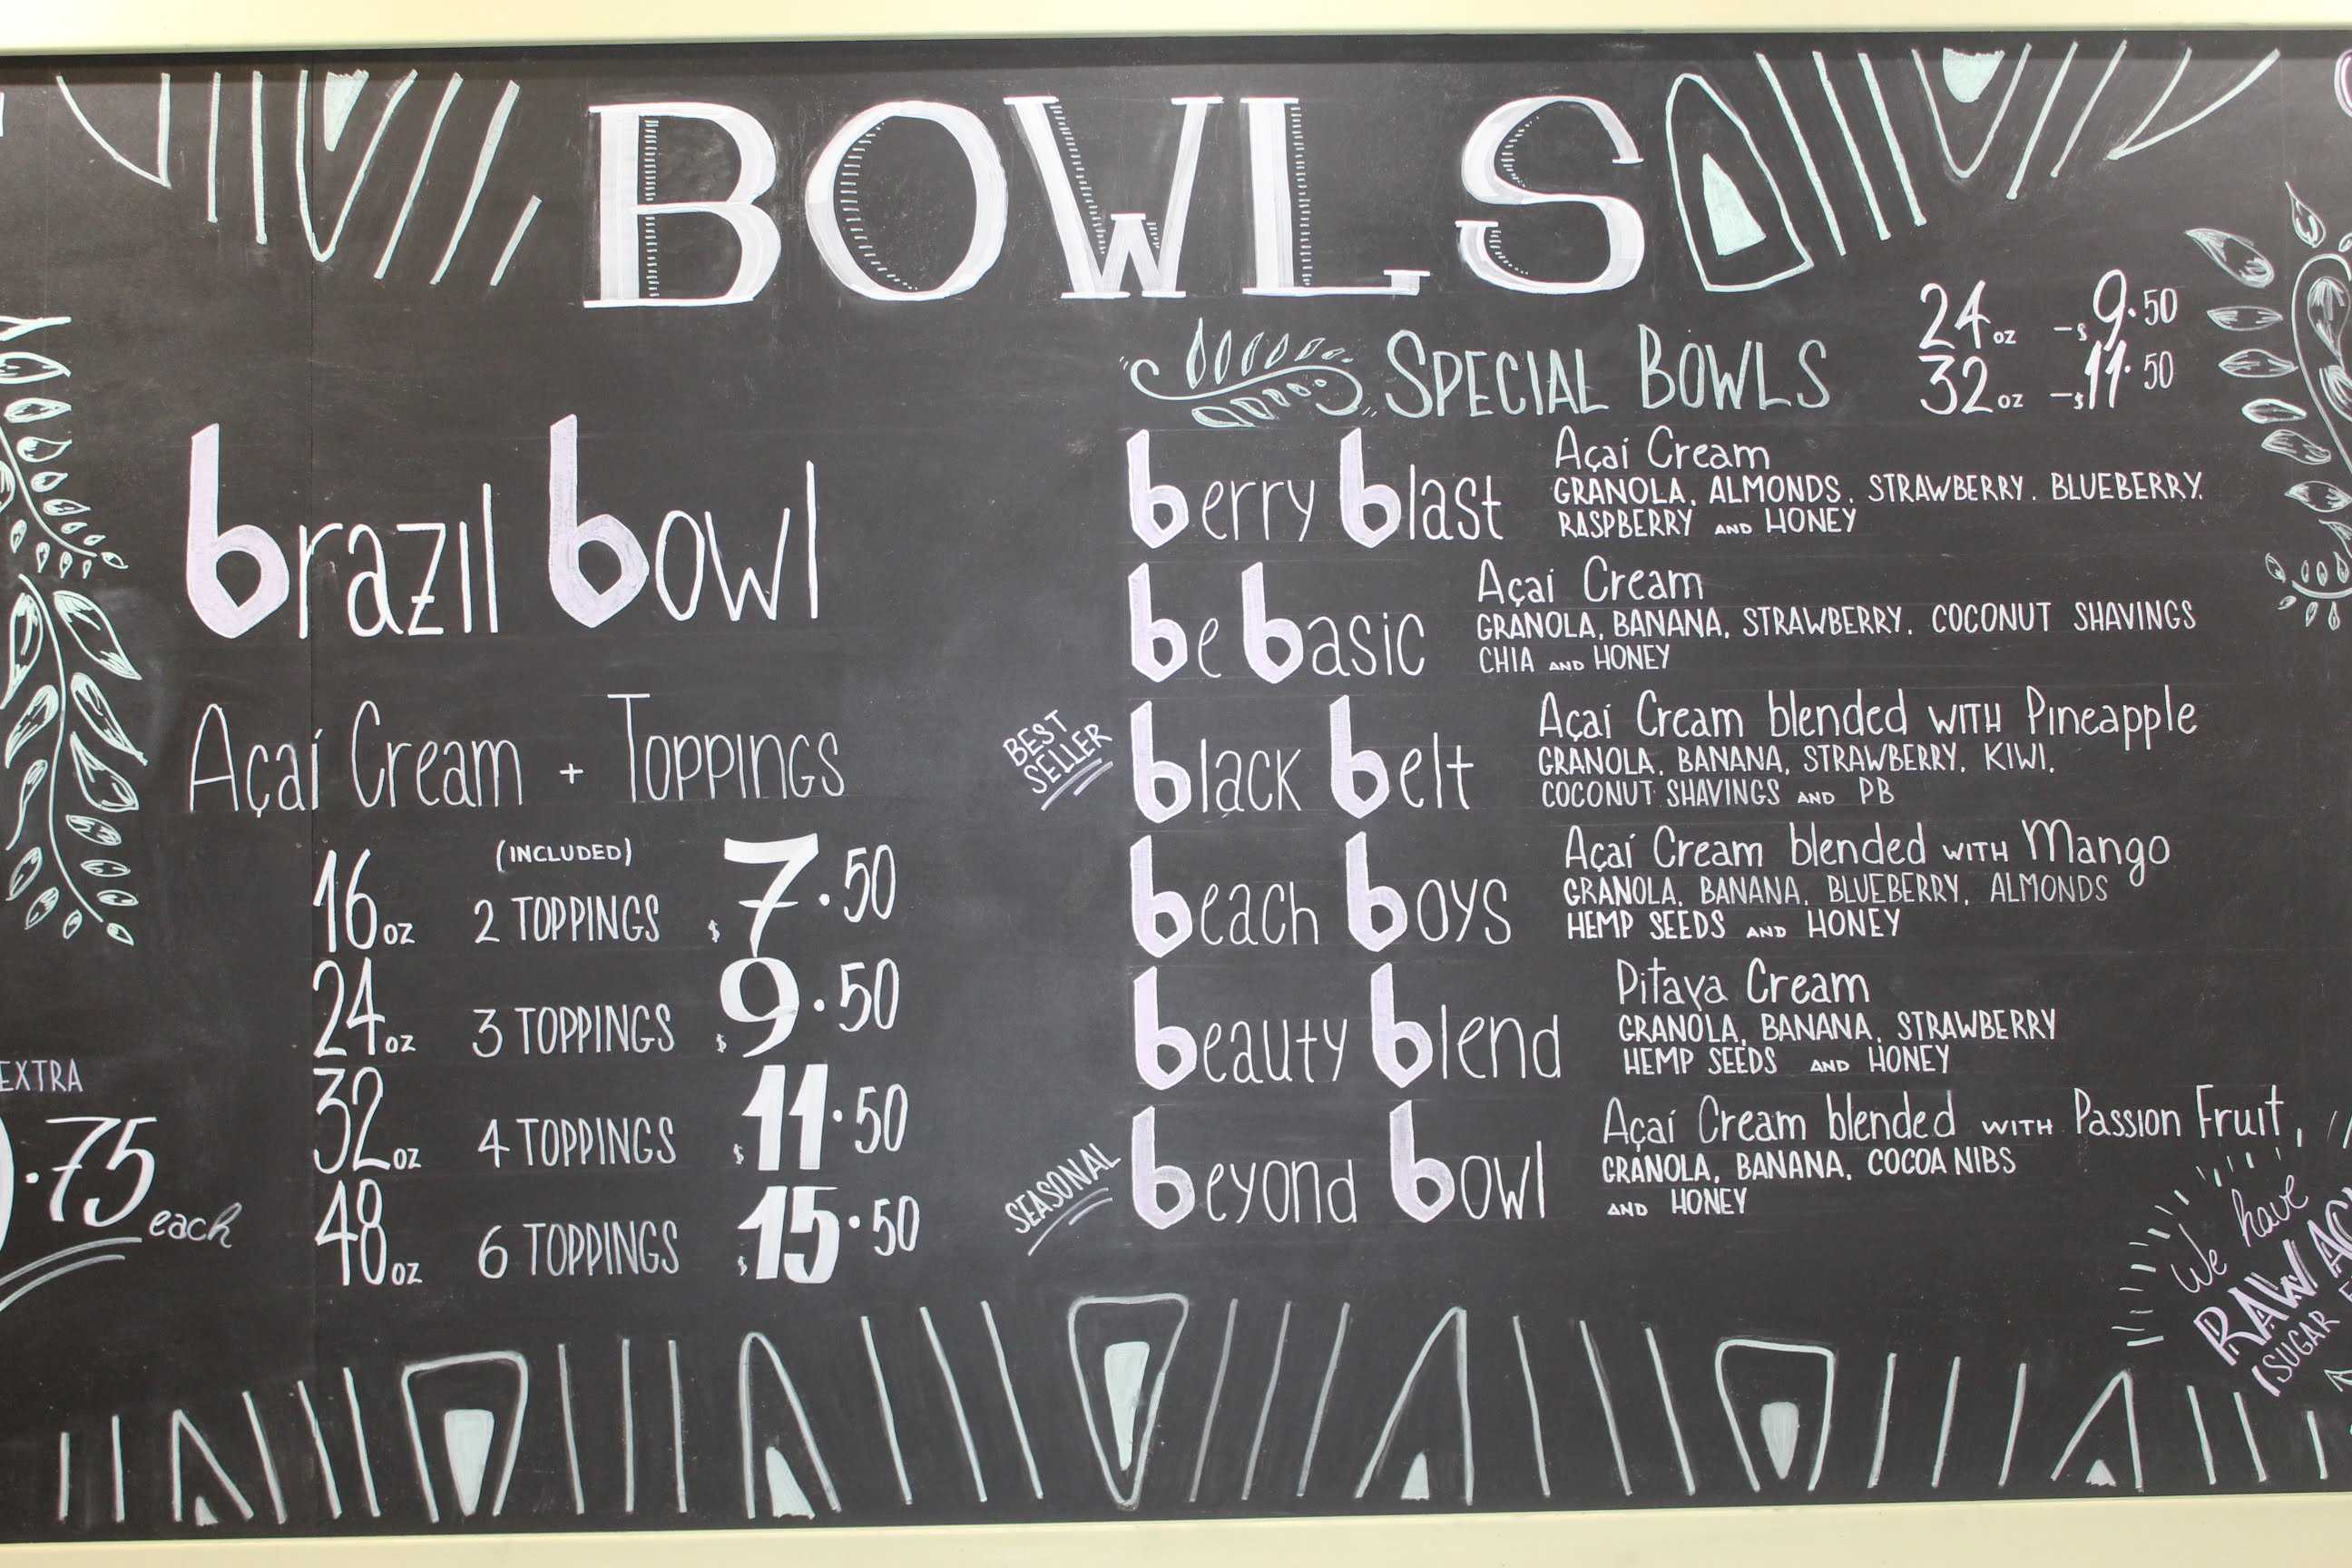 BOWLS
brazil bowl
Açaí Cream + TOPPINGS
(INCLUDED)
16 oz 2 TOPPINGS $7.50
24 oz 3 TOPPINGS $9.50
32 oz 4 TOPPINGS $11.50
48 oz 6 TOPPINGS $15.50
EXTRA
.75 each
SPECIAL BOWLS
24 oz -$9.50
32 oz -$11.50
berry blast
Açaí Cream
GRANOLA, ALMONDS, STRAWBERRY, BLUEBERRY,
RASPBERRY AND HONEY
be basic
Açaí Cream
GRANOLA, BANANA, STRAWBERRY, COCONUT SHAVINGS
CHIA AND HONEY
BEST
SELLER
black belt
Açaí Cream blended WITH Pineapple
GRANOLA, BANANA, STRAWBERRY, KIWI,
COCONUT SHAVINGS AND PB
beach boys
Açaí Cream blended WITH Mango
GRANOLA, BANANA, BLUEBERRY, ALMONDS
HEMP SEEDS AND HONEY
beauty blend
Pitaya Cream
GRANOLA, BANANA, STRAWBERRY
HEMP SEEDS AND HONEY
SEASONAL
beyond bowl
Açaí Cream blended WITH Passion Fruit,
GRANOLA, BANANA, COCOA NIBS
AND HONEY
We have
RAW
SUGAR